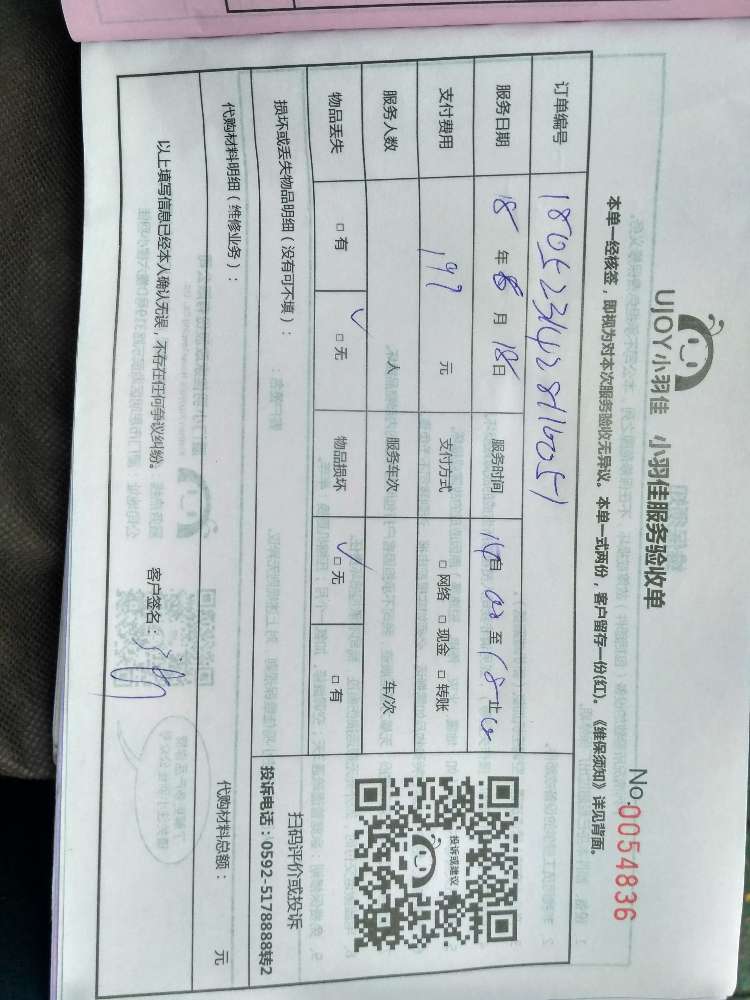 UJOY小羽佳 小羽佳服务验收单
No.0054836
本单一经核签，即视为对本次服务验收无异议。本单一式两份，客户留存一份(红)。《维保须知》详见背面。
订单编号
服务日期 18年8月18日 服务时间 自14:00至18:00止
支付费用 197元 支付方式 □网络 □现金 □转账
服务人数 人 服务车次 车/次
物品丢失 □有 ✓□无 物品损坏 ✓□无 □有
投诉或建议
损坏或丢失物品明细（没有可不填）：
扫码评价或投诉
投诉电话：0592-5178888转2
代购材料明细（维修业务）： 代购材料总额： 元
以上填写信息已经本人确认无误，不存在任何争议纠纷。 客户签名：